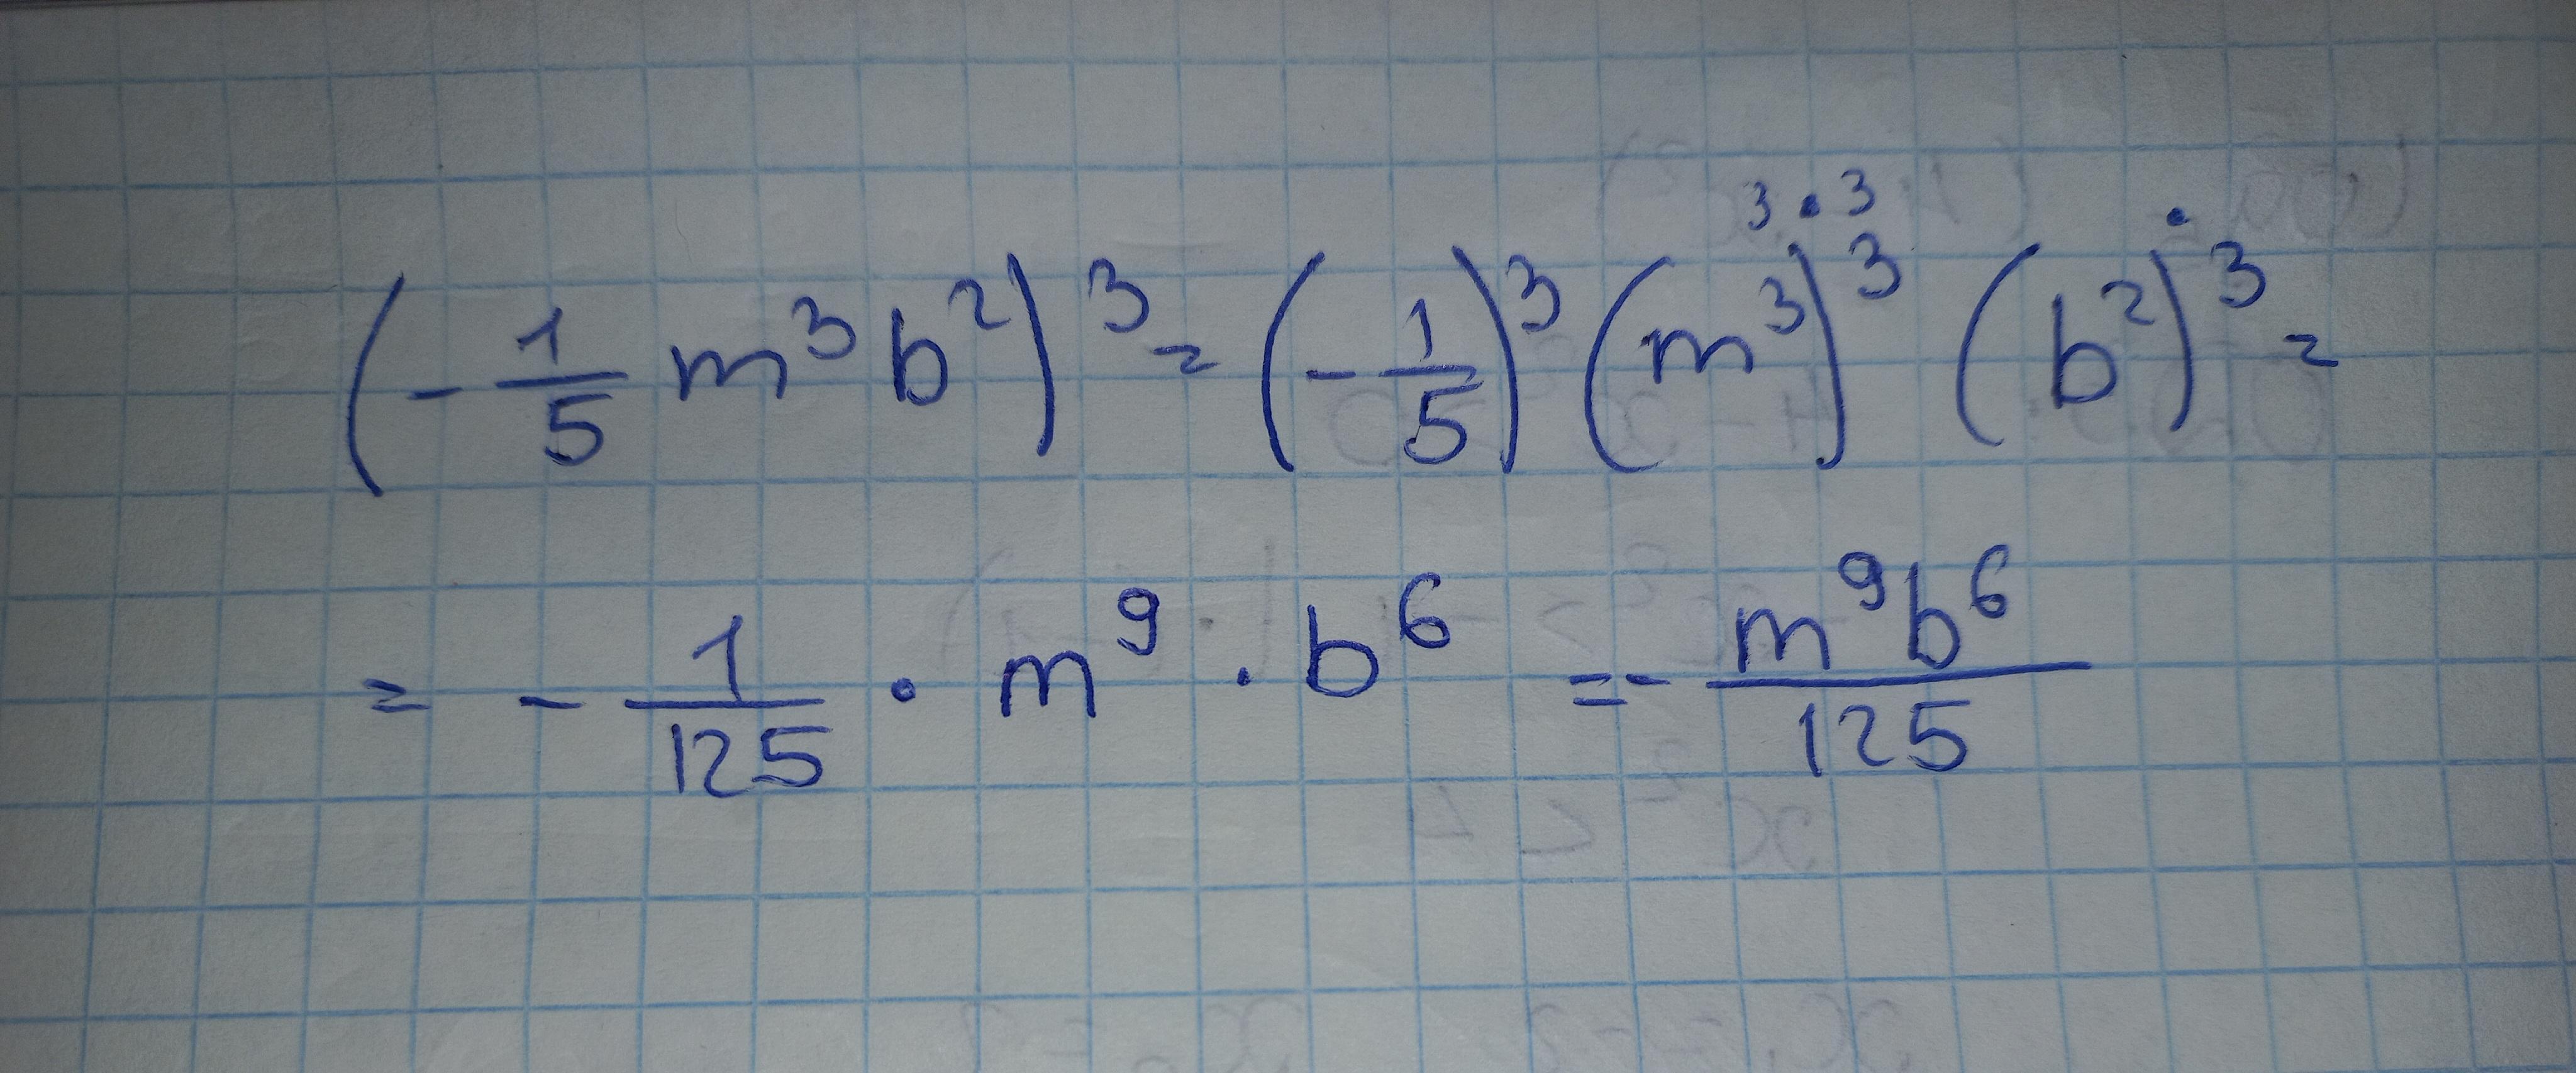 (-1/5 m³b²)³ = (-1/5)³ (m³)³ ³·³ (b²)˙³ =
= -1/125 · m⁹ · b⁶ = - m⁹b⁶/125